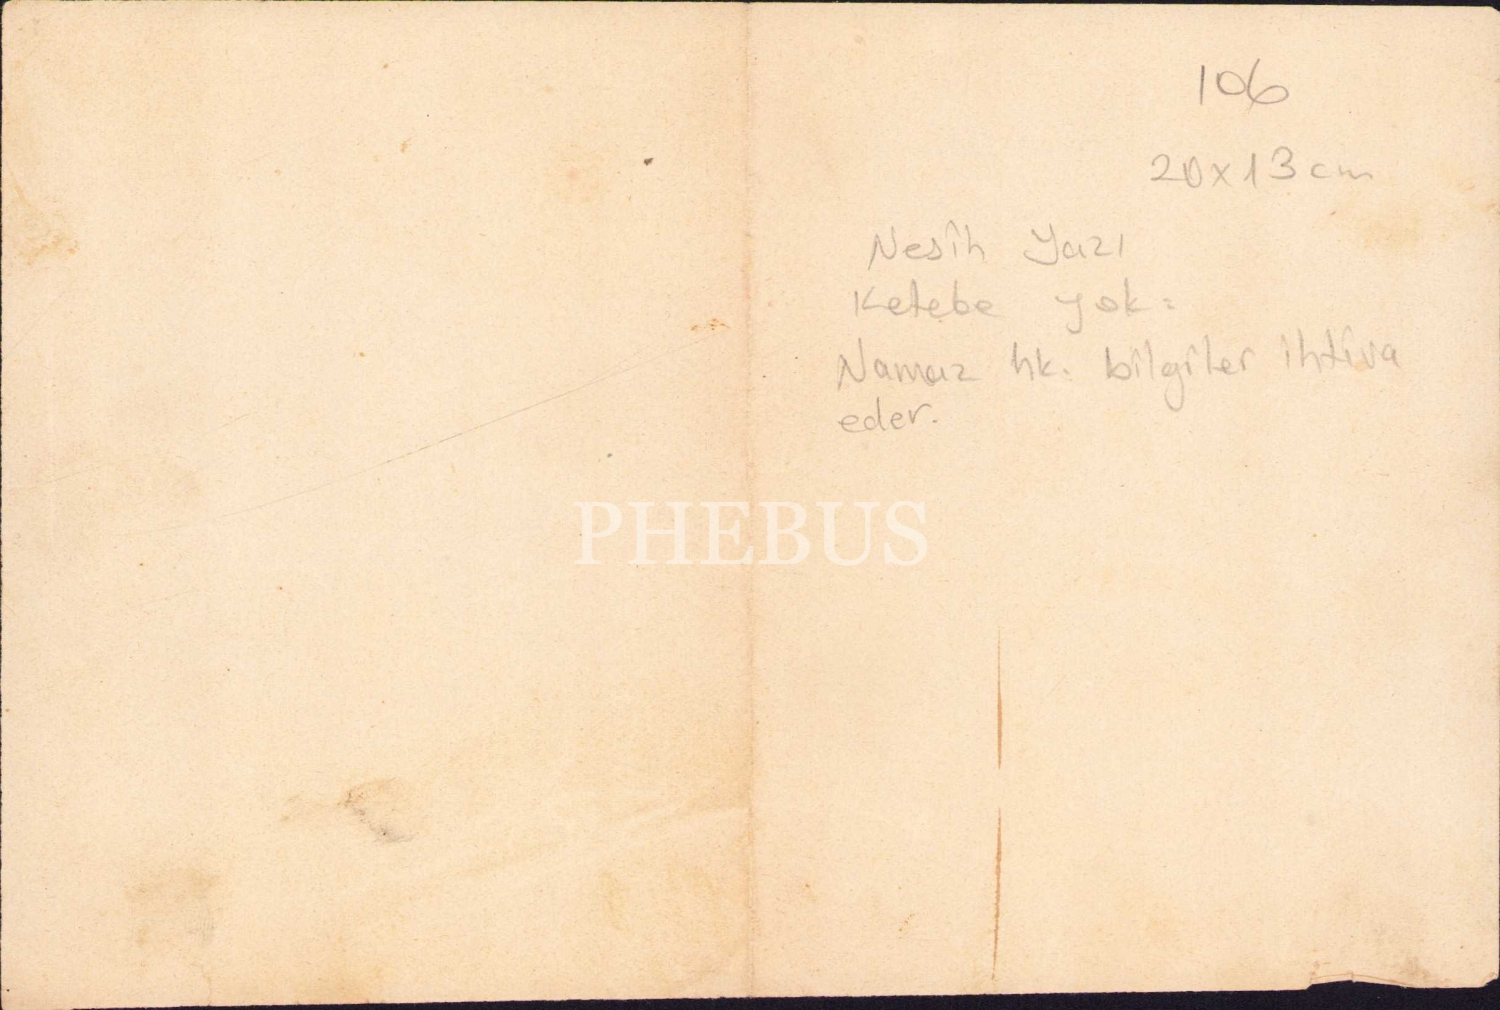 106
20x13 cm
Nesîh Yazı
Ketebe yok:
Namaz hk. bilgiler ihtiva
eder.
PHEBUS